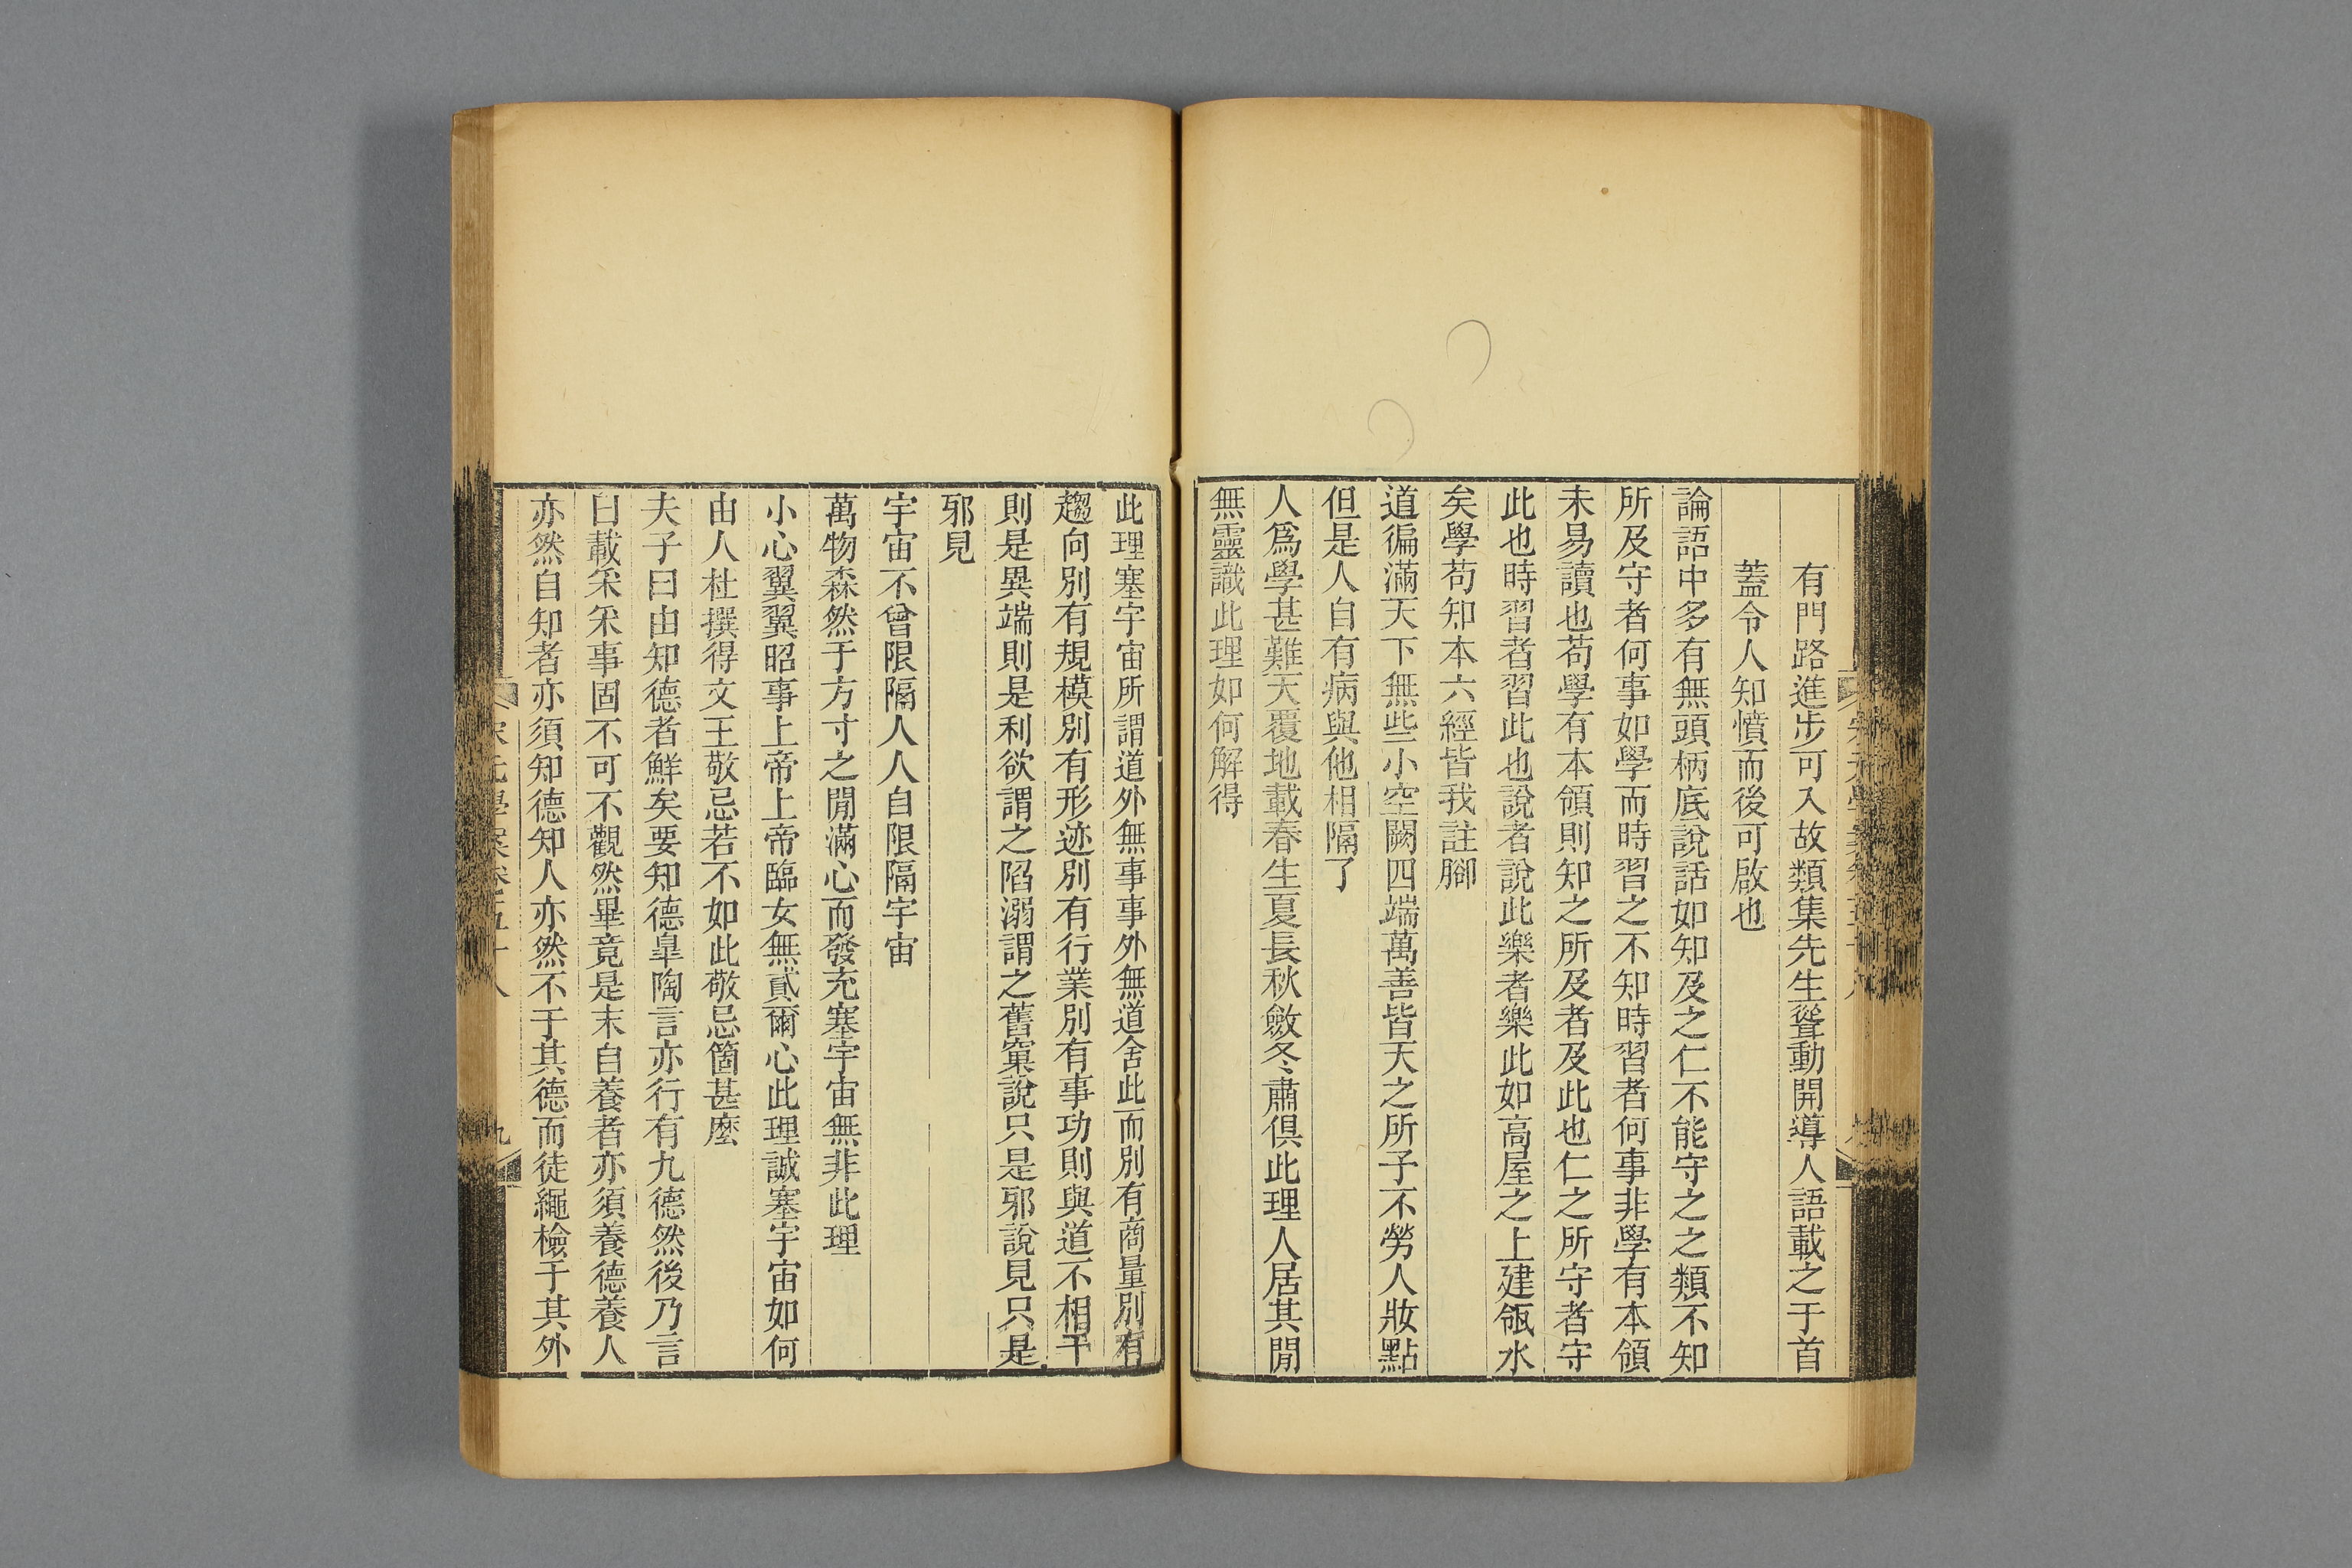 有門路進步可入故類集先生聳動開導人語載之于首
蓋令人知憤而後可啟也
論語中多有無頭柄底說話如知及之仁不能守之之類不知
所及守者何事如學而時習之不知時習者何事非學有本領
未易讀也苟學有本領則知之所及者及此也仁之所守者守
此也時習者習此也說者說此樂者樂此如高屋之上建瓴水
矣學苟知本六經皆我註腳
道徧滿天下無些小空闕四端萬善皆天之所予不勞人妝點
但是人自有病與他相隔了
人爲學甚難天覆地載春生夏長秋斂冬肅俱此理人居其閒
無靈識此理如何解得
此理塞宇宙所謂道外無事事外無道舍此而別有商量別有
趨向別有規模別有形迹別有行業別有事功則與道不相干
則是異端則是利欲謂之陷溺謂之舊窠說只是邪說見只是
邪見
宇宙不曾限隔人人自限隔宇宙
萬物森然于方寸之閒滿心而發充塞宇宙無非此理
小心翼翼昭事上帝上帝臨女無貳爾心此理誠塞宇宙如何
由人杜撰得文王敬忌若不如此敬忌箇甚麼
夫子曰由知德者鮮矣要知德皐陶言亦行有九德然後乃言
曰載采采事固不可不觀然畢竟是末自養者亦須養德養人
亦然自知者亦須知德知人亦然不于其德而徒繩檢于其外
宋元學案卷五十八
九